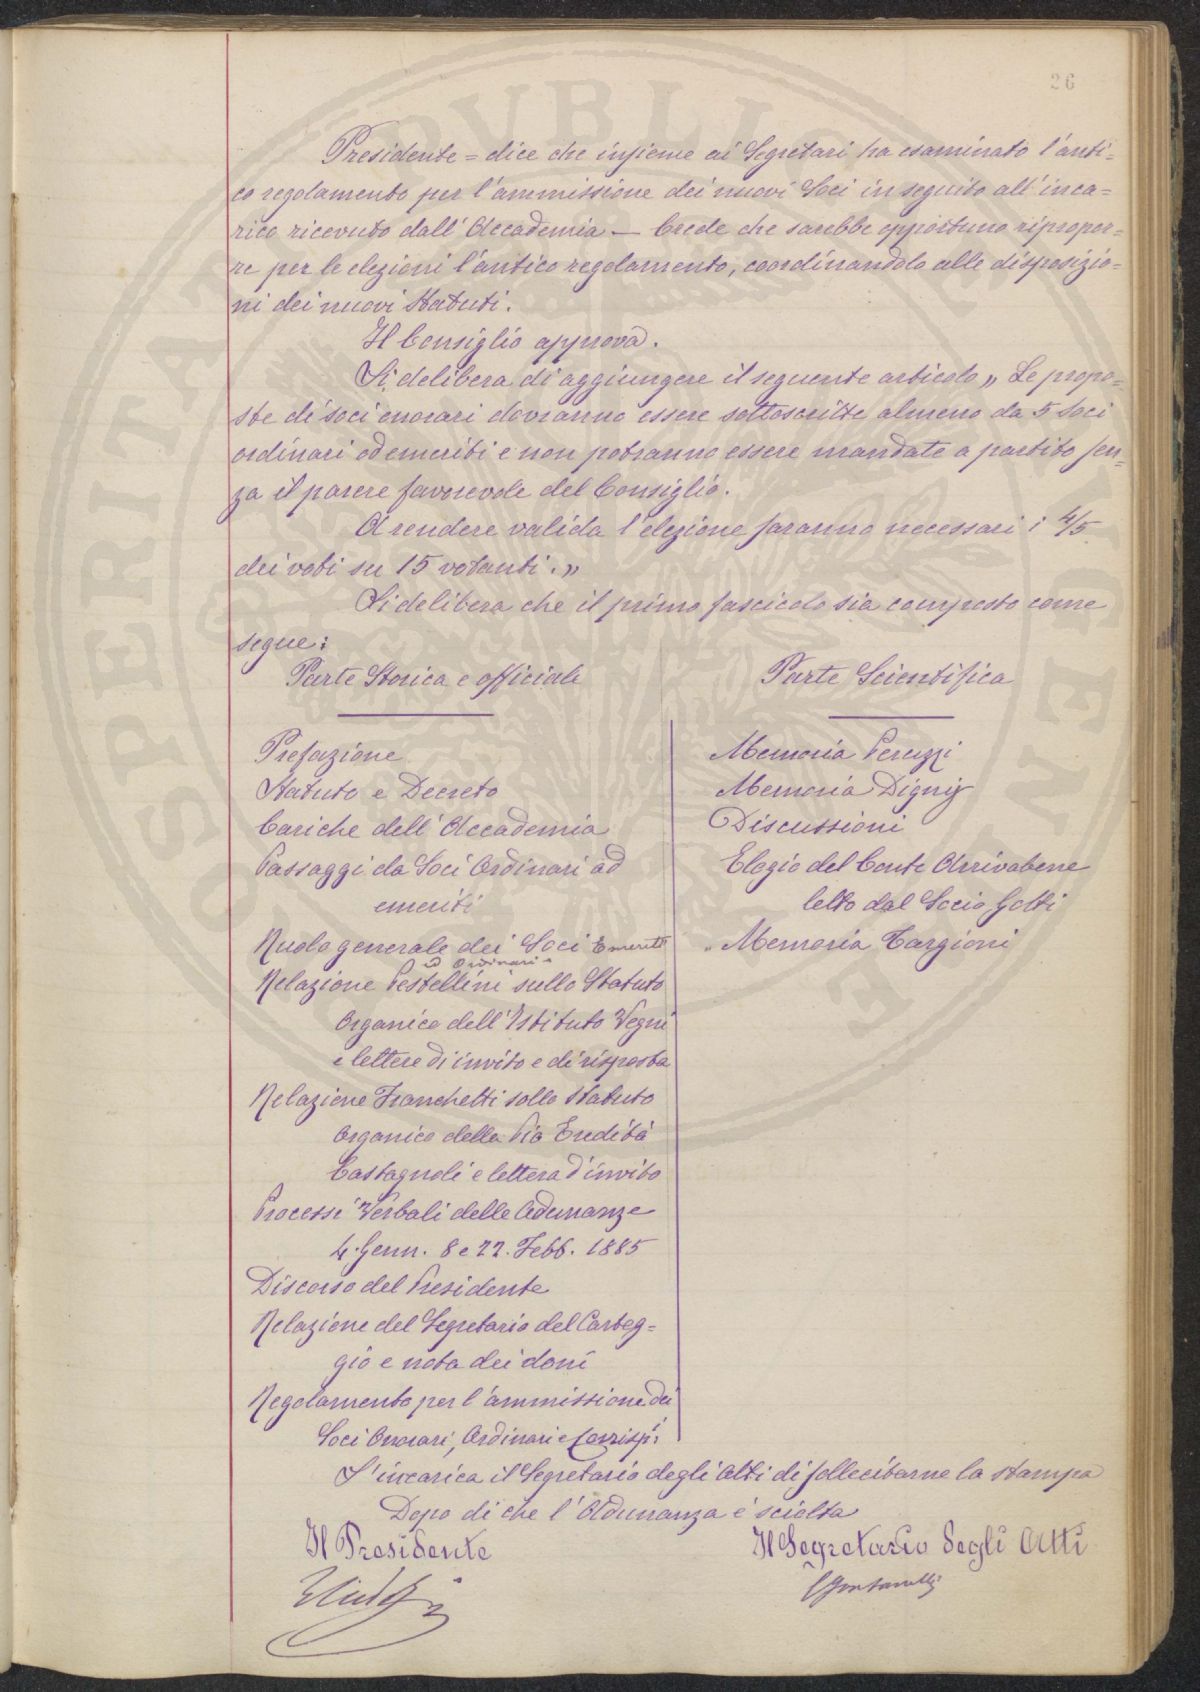 26
Presidente = dice che insieme ai Segretari ha esaminato l'anti=
co regolamento per l'ammissione dei nuovi Soci in seguito all'inca=
rico ricevuto dall'Accademia — Crede che sarebbe opportuno ripropor=
re per le elezioni l'antico regolamento, coordinandolo alle disposizio=
ni dei nuovi Statuti.
Il Consiglio approva.
Si delibera di aggiungere il seguente articolo „ Le propo=
ste di soci onorari dovranno essere sottoscritte almeno da 5 Soci
ordinari od emeriti e non potranno essere mandate a partito sen=
za il parere favorevole del Consiglio.
A rendere valida l'elezione saranno necessari i 4/5
dei voti su 15 votanti.„
Si delibera che il primo fascicolo sia composto come
segue:
Parte Storica e officiale
Prefazione
Statuto e Decreto
Cariche dell'Accademia
Passaggi da Soci Ordinari ad
emeriti
Ruolo generale dei Soci Emeriti
ed Ordinari
Relazione Pestellini sullo Statuto
Organico dell'Istituto Vegni
e lettere di invito e di risposta
Relazione Franchetti sollo Statuto
Organico della Pia Eredità
Castagnoli e lettera d'invito
Processi Verbali delle Adunanze
4. Genn. 8 e 22. Febb. 1885
Discorso del Presidente
Relazione del Segretario del Carteg=
gio e nota dei doni
Regolamento per l'ammissione dei
Soci Onorari, Ordinari e Corrisp.i
Parte Scientifica
Memoria Peruzzi
Memoria Digny
Discussioni
Elogio del Conte Arrivabene
letto dal Socio Gotti
Memoria Targioni
S'incarica il Segretario degli Atti di sollecitarne la stampa
Dopo di che l'Adunanza è sciolta
Il Presidente
Il Segretario degli Atti